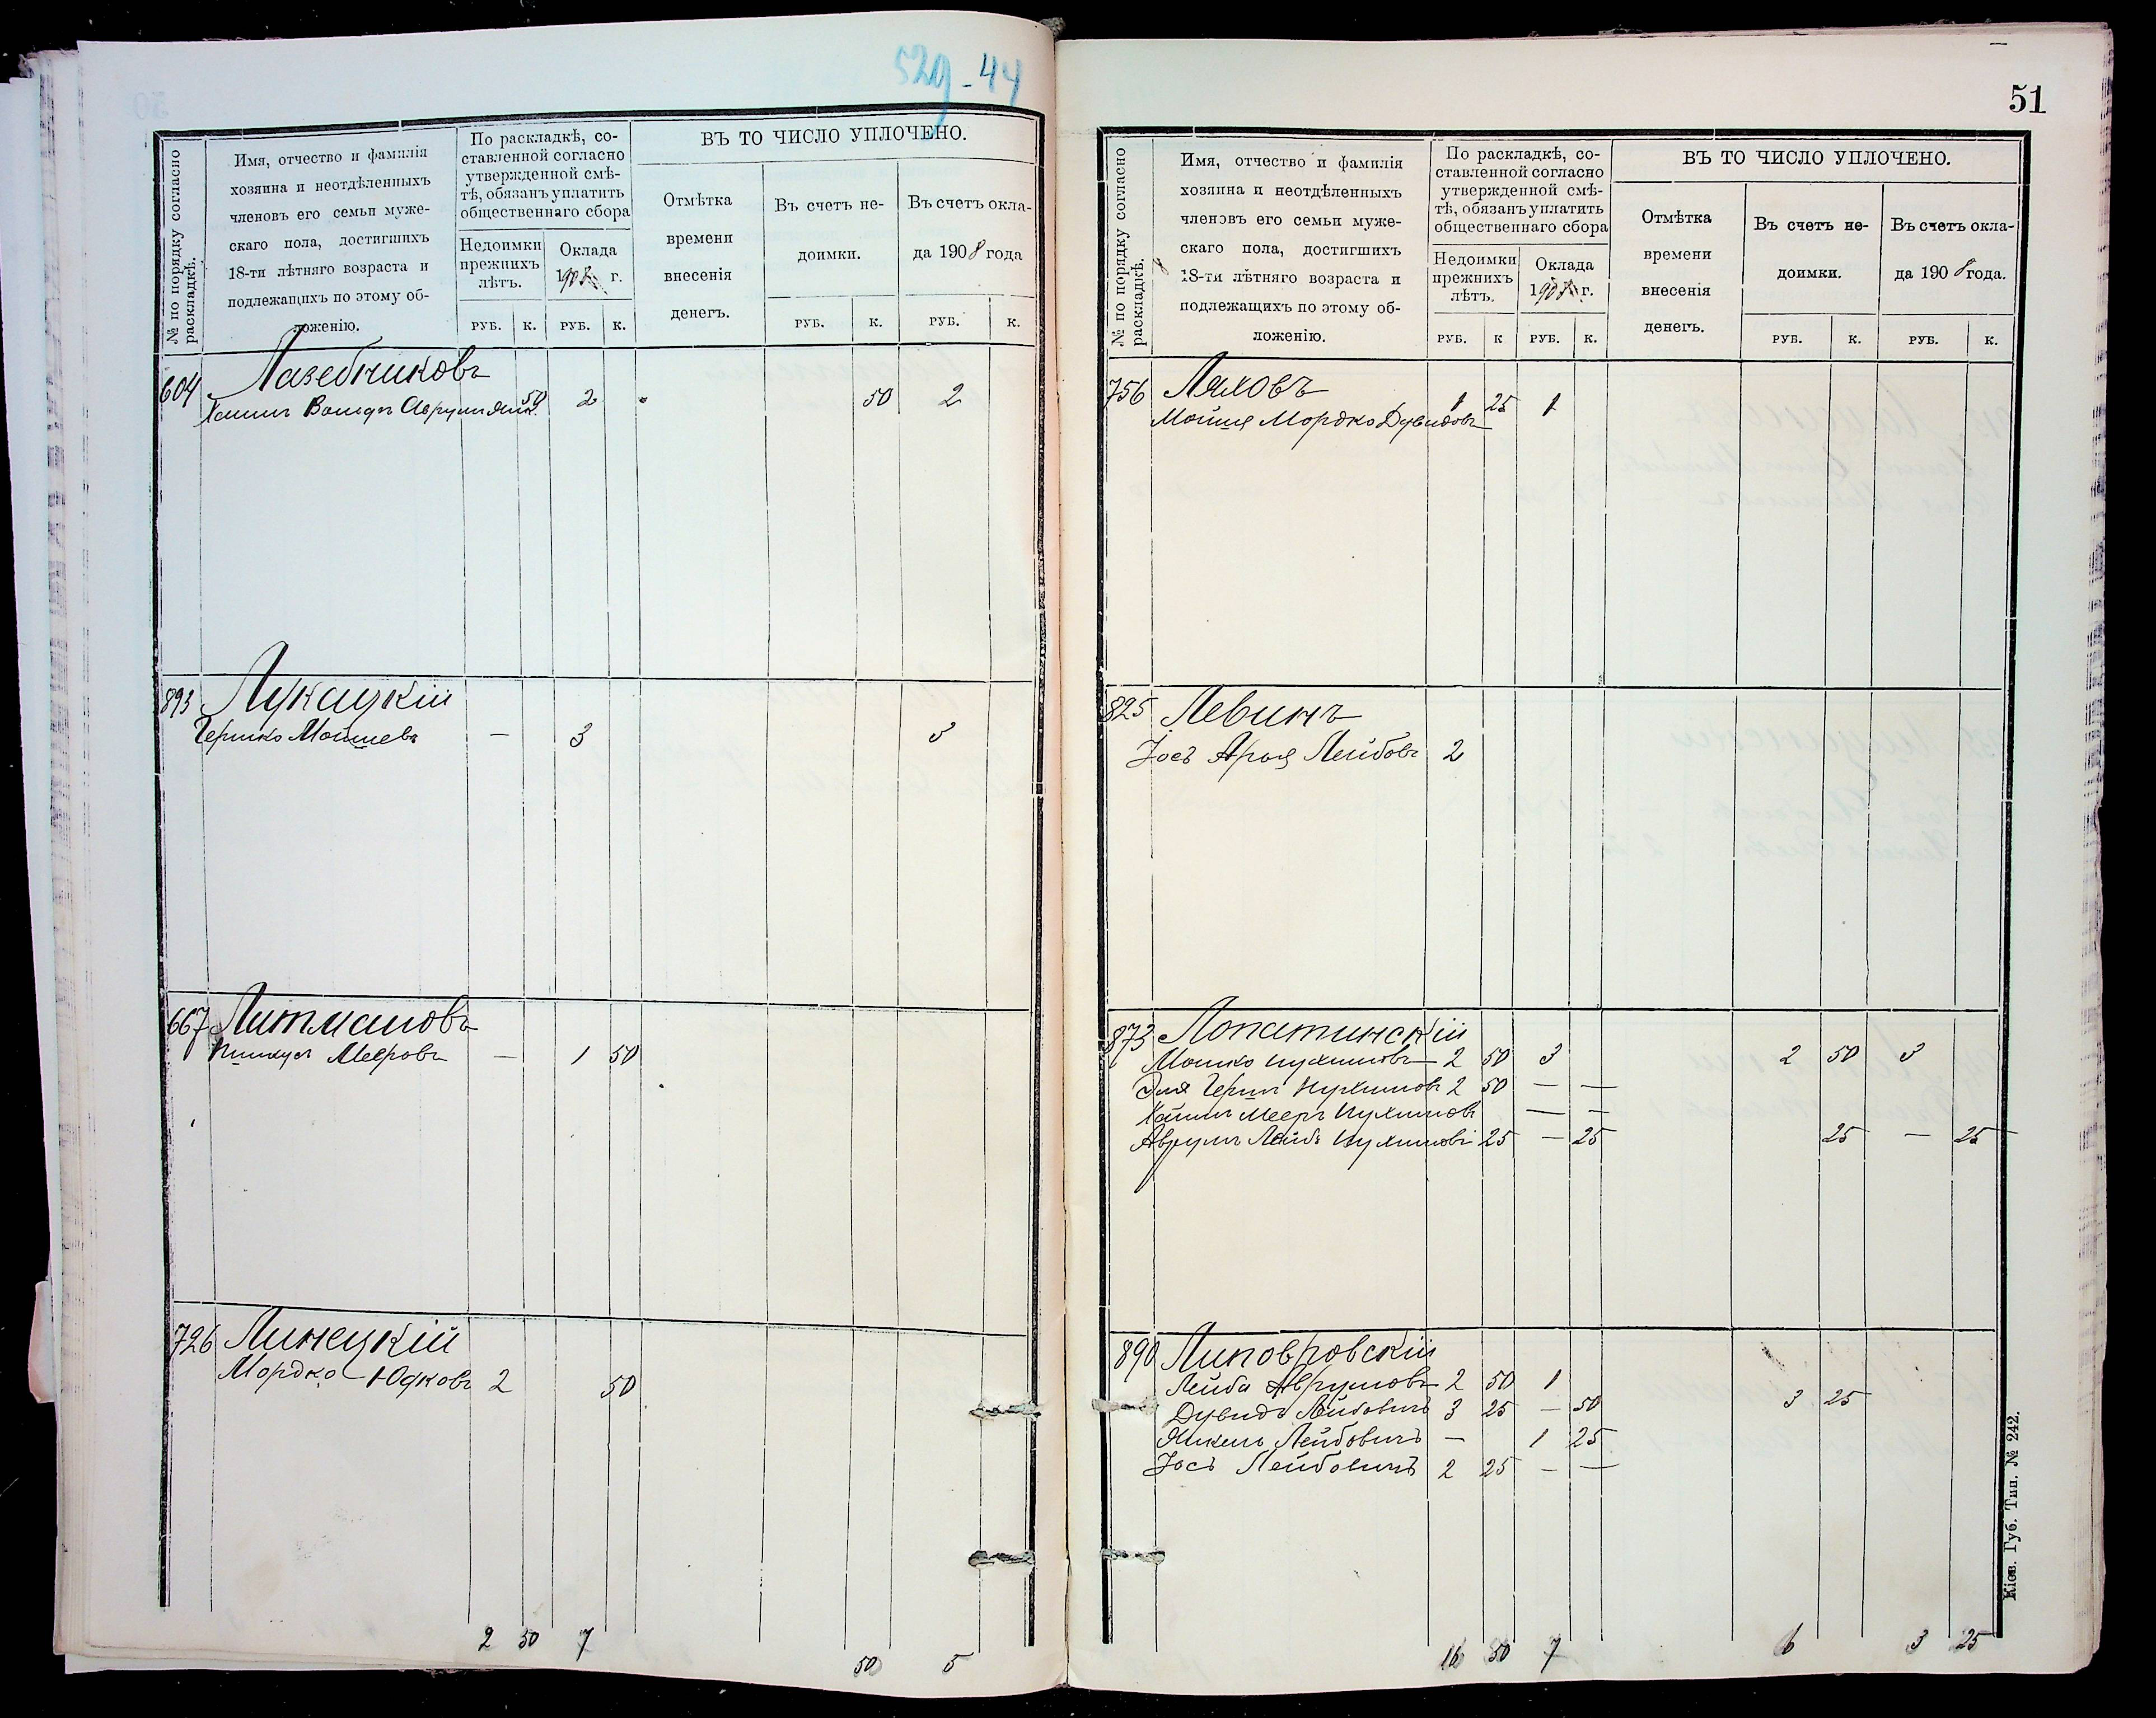 529-44
№ по порядку согласно раскладкѣ.
Имя, отчество и фамилія
хозяина и неотдѣленныхъ
членовъ его семьи муже-
скаго пола, достигшихъ
18-ти лѣтняго возраста и
подлежащихъ по этому об-
ложенію.
По раскладкѣ, со-
ставленной согласно
утвержденной смѣ-
тѣ, обязанъ уплатить
общественнаго сбора
Недоимки
прежнихъ
лѣтъ.
Оклада
1908 г.
РУБ. К. РУБ. К.
ВЪ ТО ЧИСЛО УПЛОЧЕНО.
Отмѣтка
времени
внесенія
денегъ.
Въ счетъ не-
доимки.
Въ счетъ окла-
да 1908 года
РУБ. К. РУБ. К.
604 Лазебниковъ
50 2 50 2
893 Лукацкій
Гершко Мошиевъ — 3 3
667 Литмановъ
Пинкусъ Мееровъ — 1 50
726 Линецкій
Мордко Юдковъ 2 50
2 50 7 50 5
51
№ по порядку согласно раскладкѣ.
Имя, отчество и фамилія
хозяина и неотдѣленныхъ
членовъ его семьи муже-
скаго пола, достигшихъ
18-ти лѣтняго возраста и
подлежащихъ по этому об-
ложенію.
По раскладкѣ, со-
ставленной согласно
утвержденной смѣ-
тѣ, обязанъ уплатить
общественнаго сбора
Недоимки
прежнихъ
лѣтъ.
Оклада
1908 г.
РУБ. К РУБ. К.
ВЪ ТО ЧИСЛО УПЛОЧЕНО.
Отмѣтка
времени
внесенія
денегъ.
Въ счетъ не-
доимки.
Въ счетъ окла-
да 1908 года.
РУБ. К. РУБ. К.
756 Ляховъ
Мойше Мордко Дувидовъ 1 25 1
825 Левинъ
Іосъ Арья Лейбовъ 2
873 Лопатинскій
Мошко Нухимовъ 2 50 3 2 50 3
Эля Герш Нухимовъ 2 50 — —
Хаимъ Мееръ Нухимовъ — —
Аврумъ Лейба Нухимовъ 25 — 25 25 — 25
890 Липовровскій
Лейба Аврумовъ 2 50 1
Дувидъ Лейбовичъ 3 25 — 50 3 25
Янкель Лейбовичъ — 1 25
Іосъ Лейбовичъ 2 25 — —
16 50 7 6 3 25
Кіев. Губ. Тип. № 242.